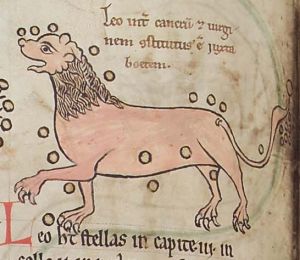 Leo int̄ cancrū ⁊ uirgi
nem ꝯstitutus ē iuxta
boetem.
Leo ht̄ stellas in capite iii in